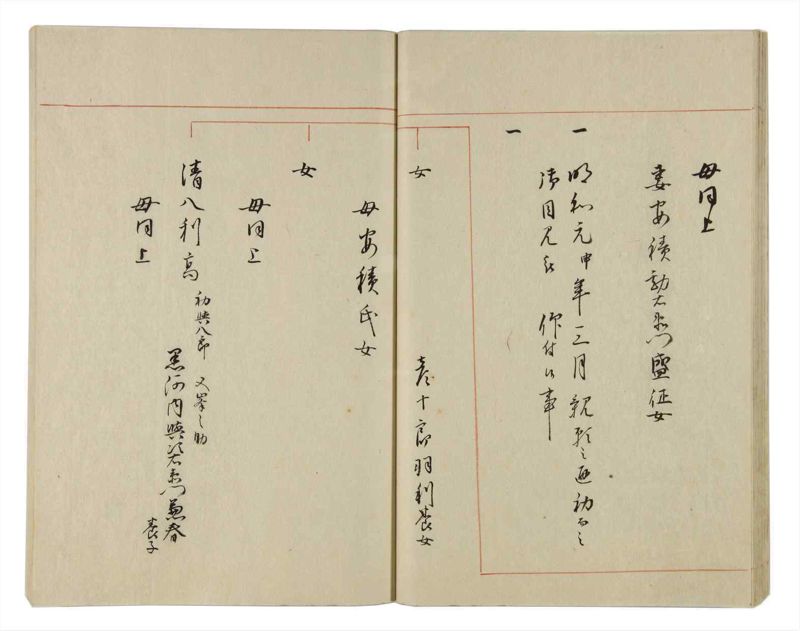 母同上
妻安積勘右衛門盛征女
一 明和元申年三月親類之通勤向之
一 御目見被 仰付候事
女
彦十郎羽利養女
母安積氏女
女
母同上
清八利高 初與八郎 又峯之助
黒河内與次右衛門兼春
養子
母同上